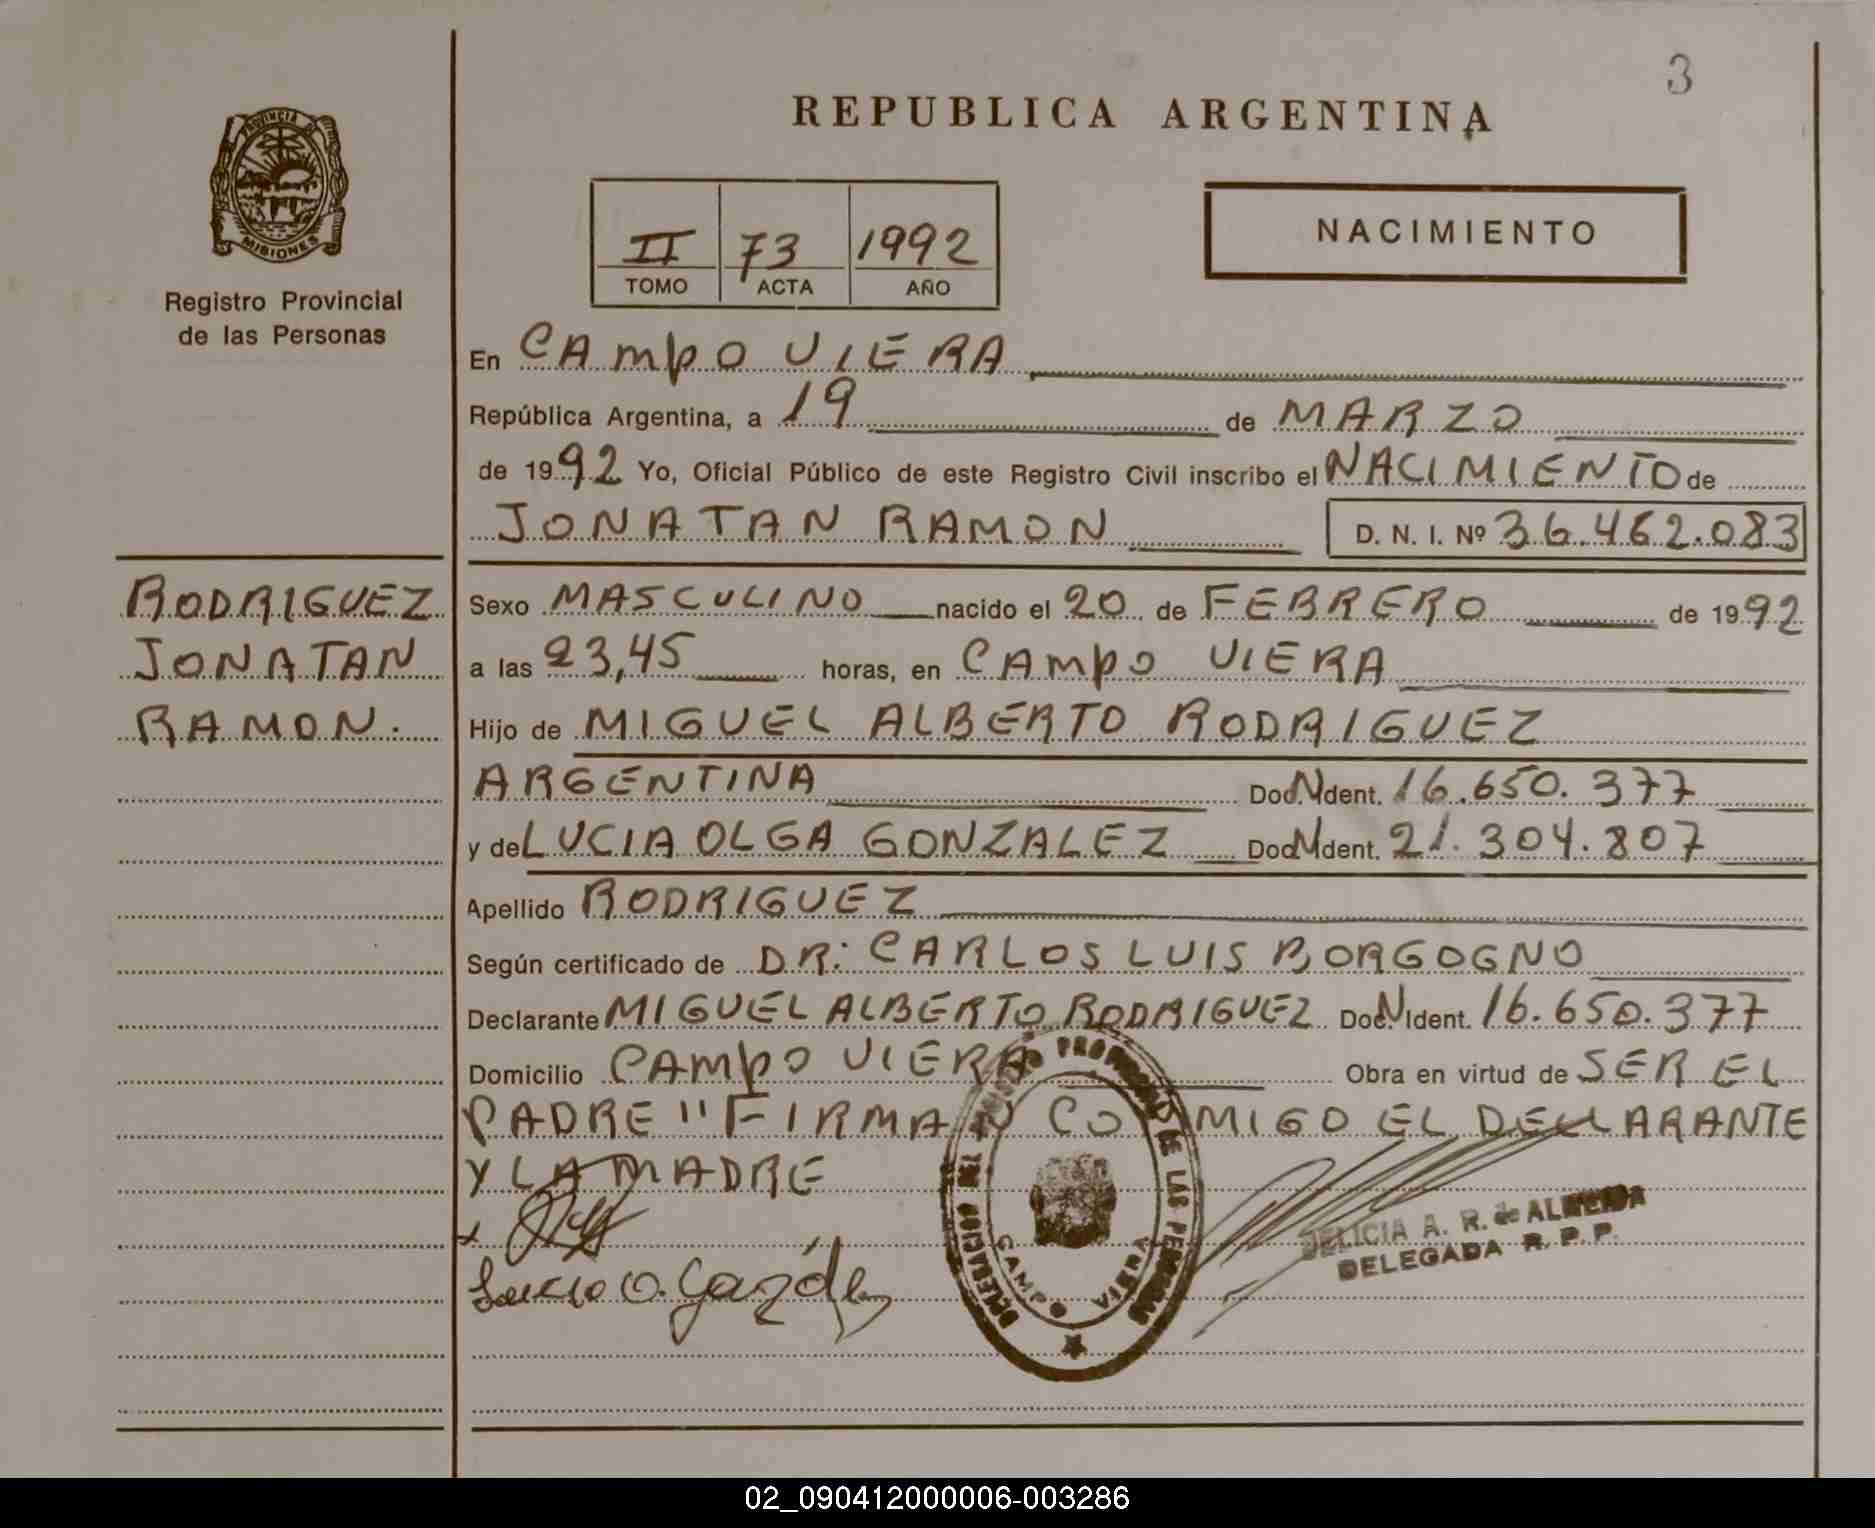 3
REPUBLICA ARGENTINA
PROVINCIA DE
MISIONES
Registro Provincial
de las Personas
II 73 1992
TOMO ACTA AÑO
NACIMIENTO
En CAMPO VIERA
República Argentina, a 19 de MARZO
de 1992 Yo, Oficial Público de este Registro Civil inscribo el NACIMIENTO de
JONATAN RAMON D. N. I. Nº 36.462.083
RODRIGUEZ
JONATAN
RAMON.
Sexo MASCULINO nacido el 20 de FEBRERO de 1992
a las 23,45 horas, en CAMPO VIERA
Hijo de MIGUEL ALBERTO RODRIGUEZ
ARGENTINA Doc. N Ident. 16.650.377
y de LUCIA OLGA GONZALEZ Doc. N Ident. 21.304.807
Apellido RODRIGUEZ
Según certificado de DR: CARLOS LUIS BORGOGNO
Declarante MIGUEL ALBERTO RODRIGUEZ Doc. N Ident. 16.650.377
Domicilio CAMPO VIERA Obra en virtud de SER EL
PADRE " FIRMAN CO MIGO EL DECLARANTE
Y LA MADRE
Lucia O. Gonzalez
DELEGACION DEL REGISTRO PROVINCIAL DE LAS PERSONAS
CAMPO VIERA
DELICIA A. R. de ALMEIDA
DELEGADA R. P. P.
02_090412000006-003286